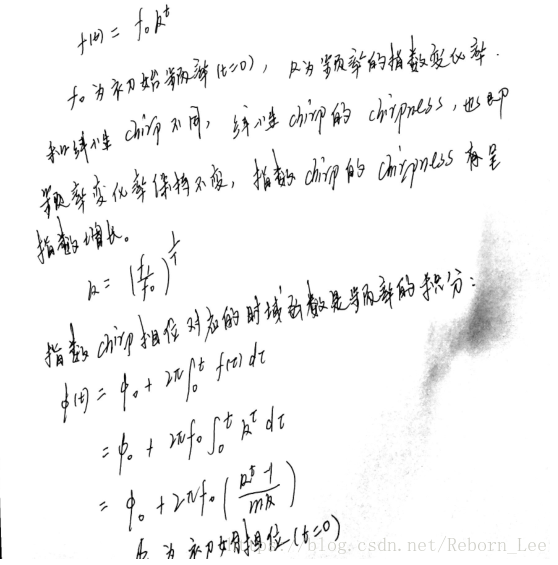 f(t) = f₀kᵗ
f₀为初始频率(t=0)，k为频率的指数变化率.
和线性chirp不同，线性chirp的chirpness，也即
频率变化率保持不变，指数chirp的chirpness将呈
指数增长。
k = (f₁/f₀)^(1/T)
指数chirp相位对应的时域函数是频率的积分：
ϕ(t) = ϕ₀ + 2π∫₀ᵗ f(τ) dτ
= ϕ₀ + 2πf₀∫₀ᵗ k^τ dτ
= ϕ₀ + 2πf₀((kᵗ-1)/lnk)
ϕ₀为初始相位(t=0)
https://blog.csdn.net/Reborn_Lee